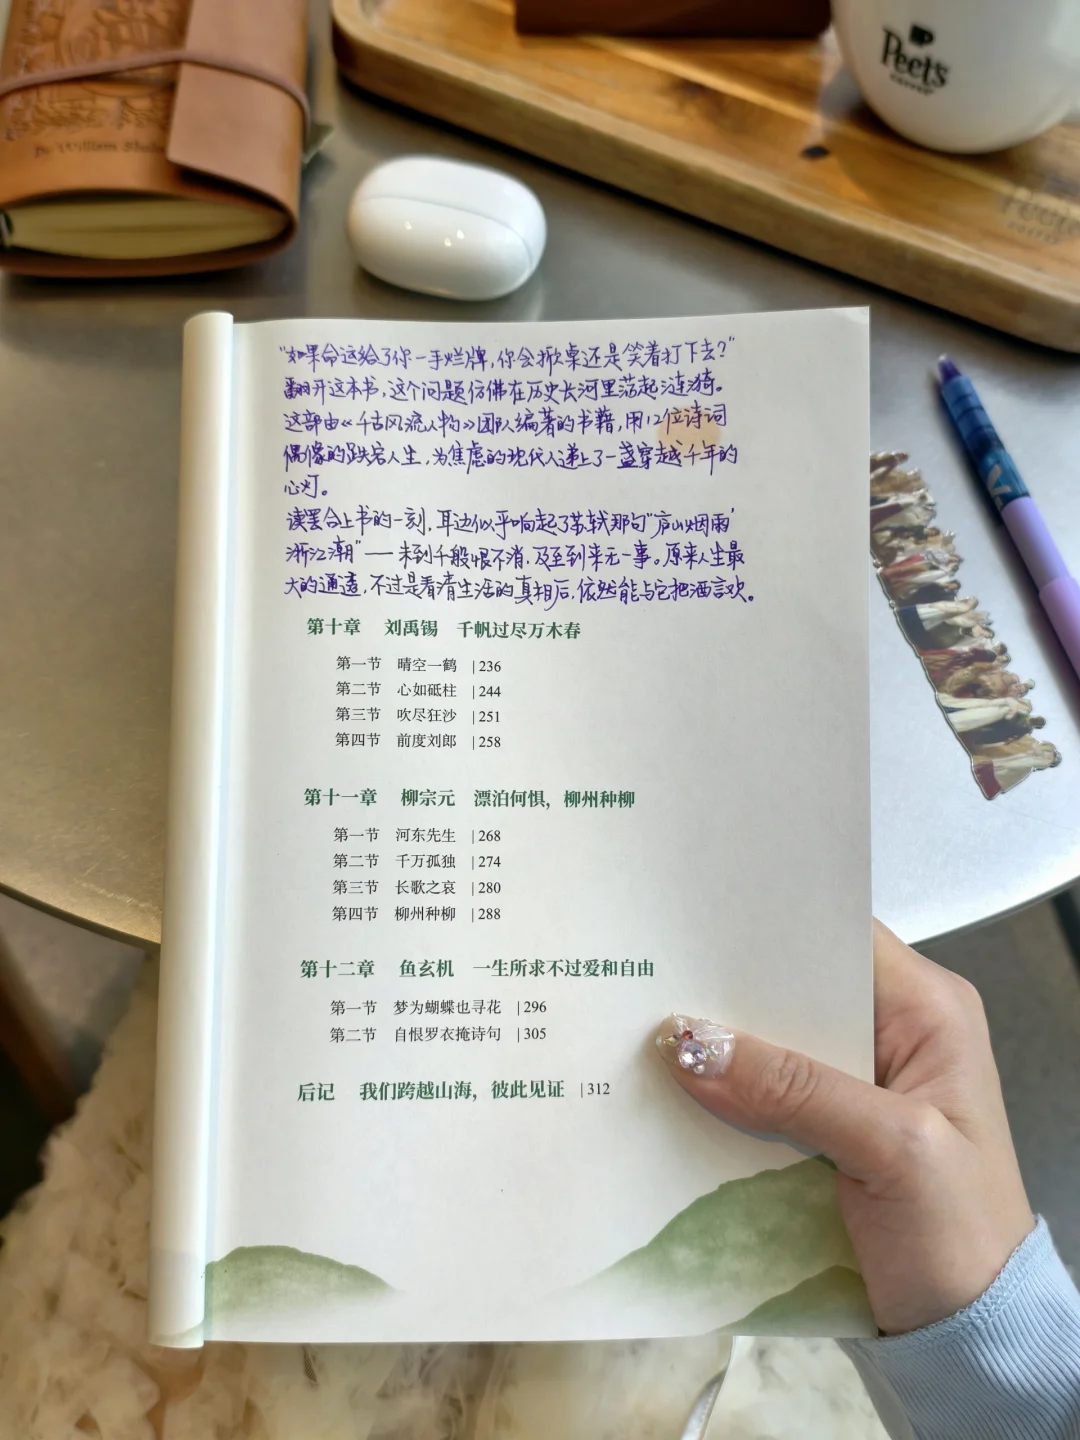 By William Shake
Peet's
COFFEE
Peet's
COFFEE
"如果命运给了你一手烂牌,你会掀桌还是笑着打下去?"
翻开这本书,这个问题仿佛在历史长河里荡起涟漪。
这部由《千古风流人物》团队编著的书籍,用12位诗词
偶像的跌宕人生,为焦虑的现代人递上了一盏穿越千年的
心灯。
读罢合上书的一刻,耳边似乎响起了苏轼那句"庐山烟雨
浙江潮"——未到千般恨不消,及至到来无一事。原来人生最
大的通透,不过是看清生活的真相后,依然能与它把酒言欢。
第十章 刘禹锡 千帆过尽万木春
第一节 晴空一鹤 | 236
第二节 心如砥柱 | 244
第三节 吹尽狂沙 | 251
第四节 前度刘郎 | 258
第十一章 柳宗元 漂泊何惧,柳州种柳
第一节 河东先生 | 268
第二节 千万孤独 | 274
第三节 长歌之哀 | 280
第四节 柳州种柳 | 288
第十二章 鱼玄机 一生所求不过爱和自由
第一节 梦为蝴蝶也寻花 | 296
第二节 自恨罗衣掩诗句 | 305
后记 我们跨越山海,彼此见证 | 312